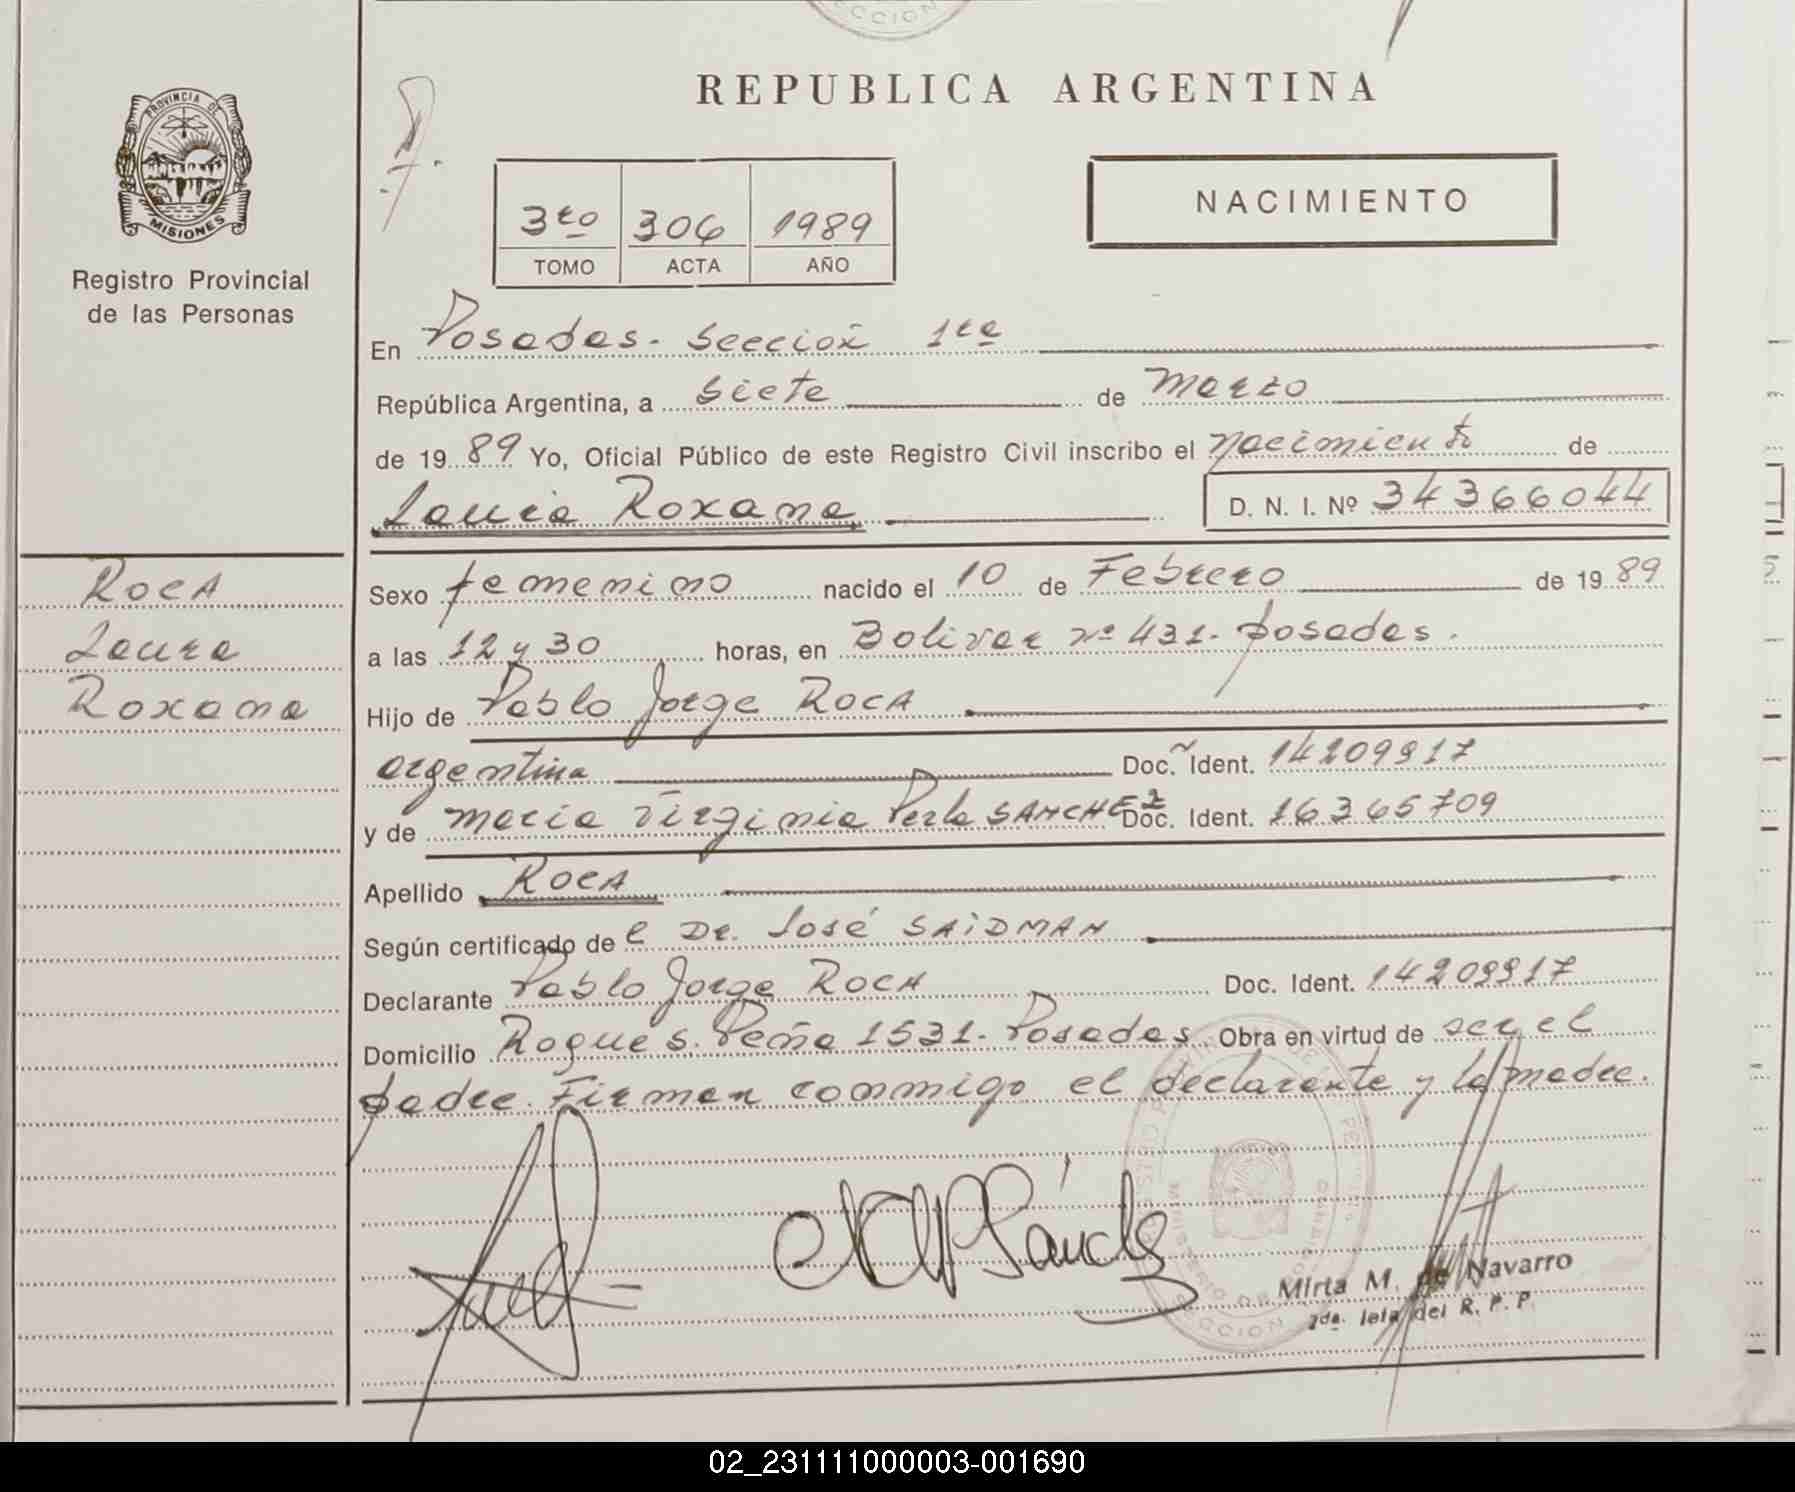 SECCION
REPUBLICA ARGENTINA
PROVINCIA DE
MISIONES
Registro Provincial
de las Personas
3ro 306 1989
TOMO ACTA AÑO
NACIMIENTO
En Posadas. Sección 1ra
República Argentina, a siete de marzo
de 1989 Yo, Oficial Público de este Registro Civil inscribo el nacimiento de
Laura Roxana D. N. I. Nº 34366044
ROCA
Laura
Roxana
Sexo femenino nacido el 10 de Febrero de 1989
a las 12 y 30 horas, en Bolivar nº 431. posadas.
Hijo de Pablo Jorge ROCA
argentina Doc. Ident. 14209917
y de maria Virginia Perla SANCHEZ Doc. Ident. 16365709
Apellido ROCA
Según certificado del Dr. José SAIDMAN
Declarante Pablo Jorge ROCA Doc. Ident. 14209917
Domicilio Roque S. Peña 1531. Posadas. Obra en virtud de ser el
padre. Firman conmigo el declarante y la madre.
Sánchez
Mirta M. de Navarro
2da. Jefa del R. P. P.
02_231111000003-001690